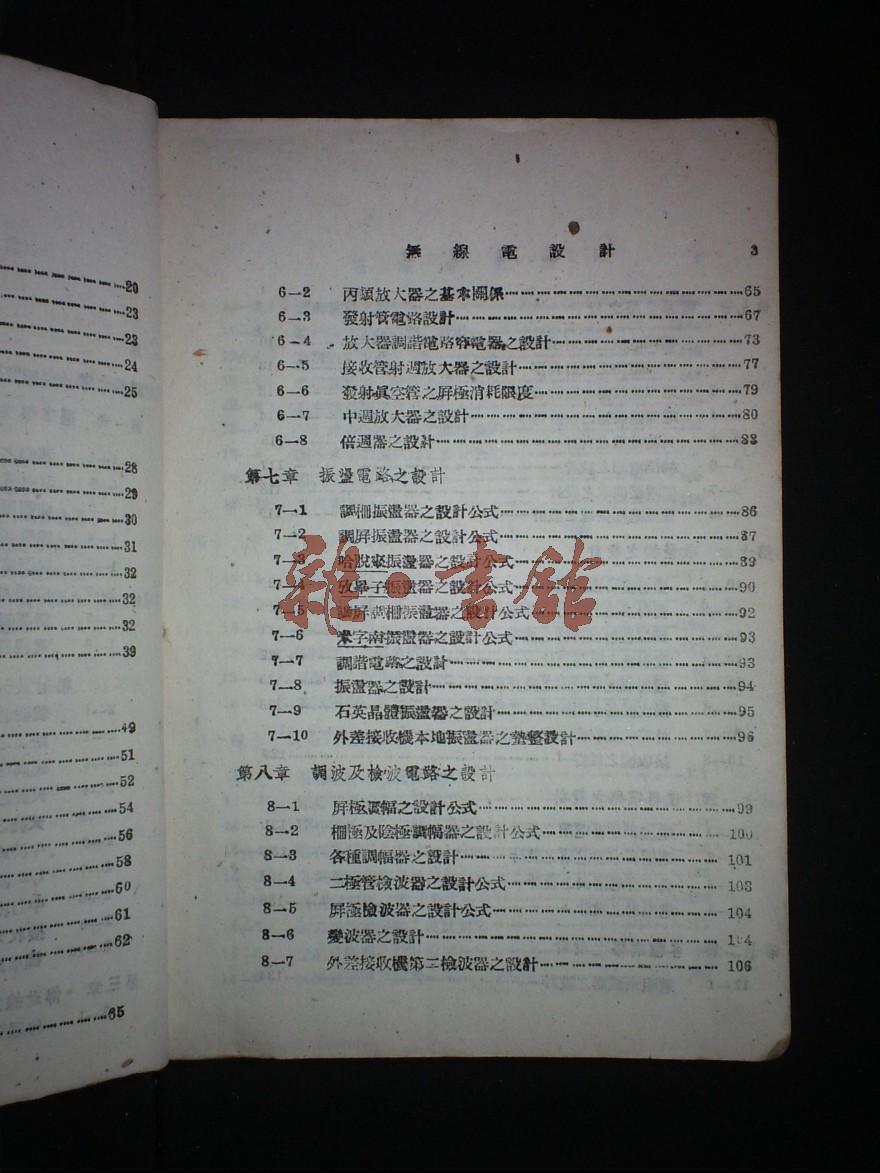 20
23
23
24
25
28
29
30
31
32
32
32
39
49
51
52
54
56
58
60
61
62
65
無線電設計 3
6—2 丙類放大器之基本關係 65
6—3 發射管電路設計 67
6—4 放大器調諧電路容電器之設計 73
6—5 接收管射週放大器之設計 77
6—6 發射眞空管之屏極消耗限度 79
6—7 中週放大器之設計 80
6—8 倍週器之設計 83
第七章 振盪電路之設計
7—1 調柵振盪器之設計公式 86
7—2 調屏振盪器之設計公式 87
7—3 哈脫來振盪器之設計公式 89
7—4 攷畢子振盪器之設計公式 90
7—5 調屏調柵振盪器之設計公式 92
7—6 米字南振盪器之設計公式 93
7—7 調諧電路之設計 93
7—8 振盪器之設計 94
7—9 石英晶體振盪器之設計 95
7—10 外差接收機本地振盪器之墊整設計 96
第八章 調波及檢波電路之設計
8—1 屏極調幅之設計公式 99
8—2 柵極及陰極調幅器之設計公式 100
8—3 各種調幅器之設計 101
8—4 二極管檢波器之設計公式 103
8—5 屏極檢波器之設計公式 104
8—6 變波器之設計 104
8—7 外差接收機第二檢波器之設計 106
雜·書館